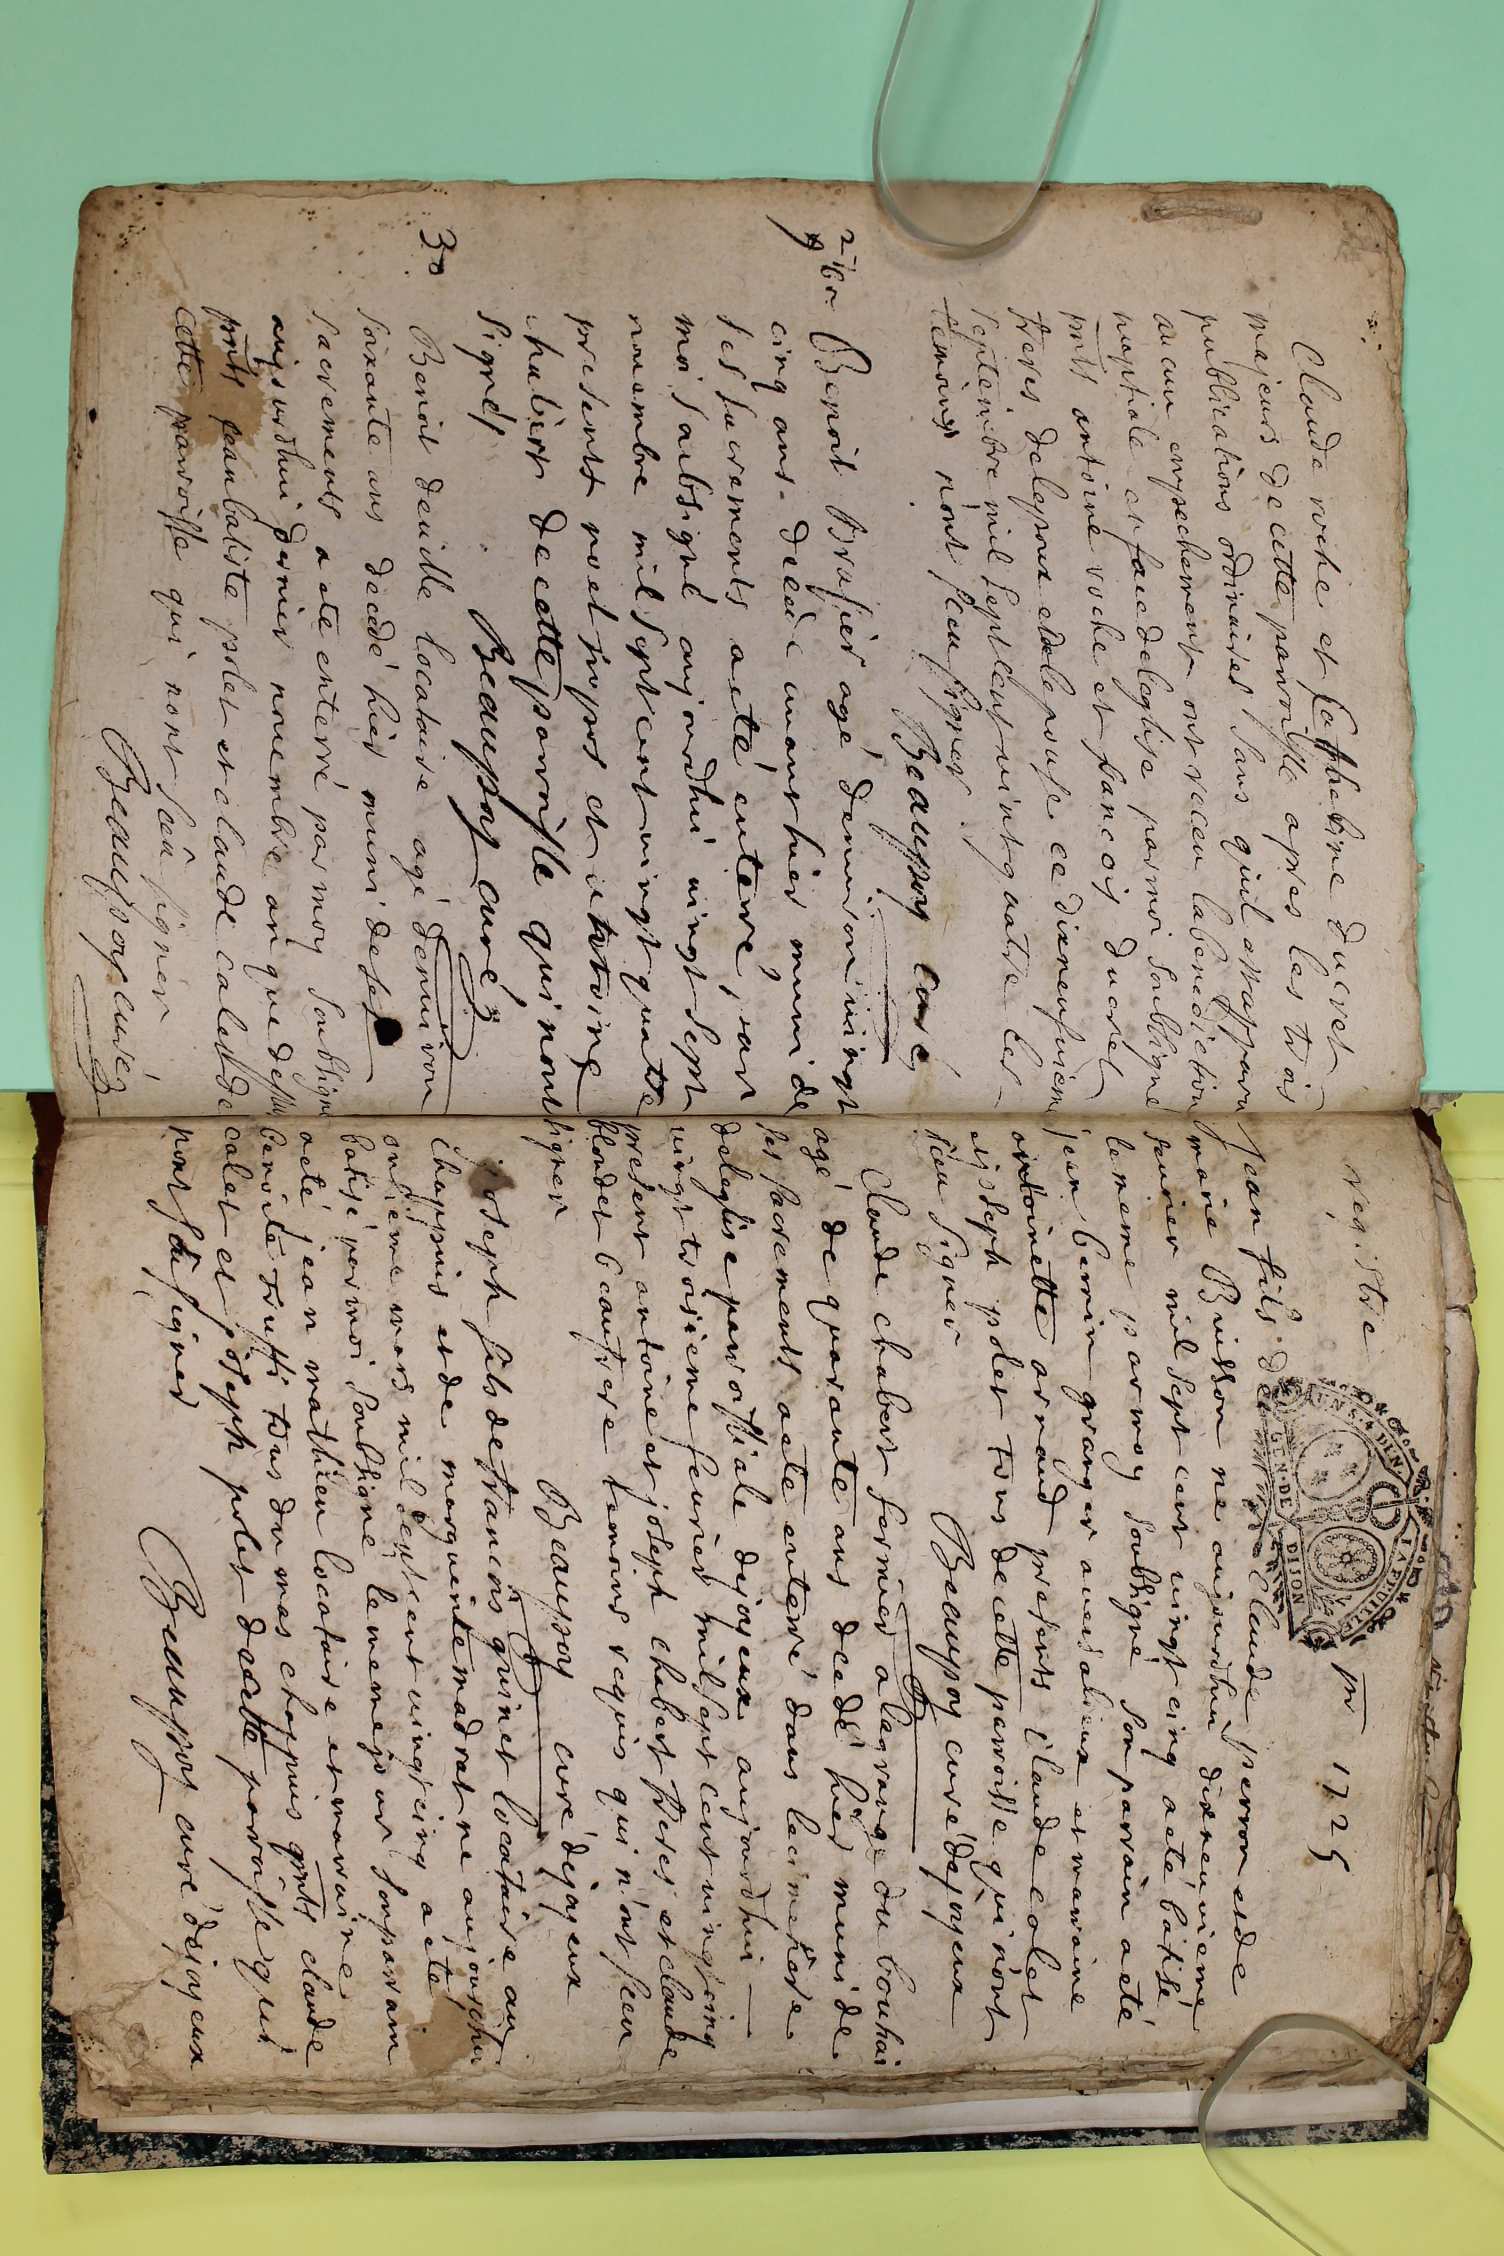 Claude roche et Catherine ducret
majeurs de cette parroisse apres les trois
publications ordinaires sans quil aye apparu
aucun empechement ont receu la benediction
nuptiale en face deleglise par moi soubsigné
pnts antoine roche et francois ducret
freres delepoux et delepouse ce dixneufuieme
septembre mil sept cent vingt quatre les
temoings n'ont sceu signer.
Beaupoy curé
Benoit Brasier agé denuiron vingt
cinq ans decedé auant hier muni de
ses sacrements a eté enterré par
moi soubsigné aujourdhui vingt sept
nouembre mil sept cent vingt quatre
presents noel et antoine
chabert de cette parroisse qui nont
signés
Beaupoy curé
30
Benoit locataire agé denuiron
soixante ans decedé hier muni deses
sacrements a eté enterré par moy soubsigné
aujourdhui dernier nouembre an que dessus
pnts jean batiste polet et claude calet de
cette parroisse qui nont sceu signer
Beaupoy curé
registre pr 1725
Jean fils de claude perron et de
marie Buisson ne aujourdhui dixneuuieme
feurier mil sept cent vingt cinq a eté batisé
le meme par moy soubsigné son parrain a eté
jean berrin granger et marraine
antoinette arnaud presents claude colet
et joseph polet tous de cette parroisse qui n'ont
sceu signer
Beaupoy curé dejoyeux
GEN. DE DIJON
Claude chabert fermier a la grange du bouhai
agé de quarante ans decedé hier muni de
ses sacrements a eté enterré dans le cimetiere
deleglise parroissiale dejoyeux aujourdhui
vingt troisieme feurier mil sept cent vingt cinq
present antoine et joseph chabert freres et claude
blondet beaufrere temoins requis qui n'ont sceu
signer
Beaupoy curé dejoyeux
joseph fils de francois guinet locataire au
chappuis et de marguerite madrat ne aujourdhui
onzieme mars mil sept cent vingt cinq a eté
batisé par moi soubsigné le meme jour son parrain
a eté jean mathieu locataire et marraine
benoite truffi tous du mas chappuis pnts claude
calet et joseph polet de cette parroisse qui
nont sceu signer
Beaupoy curé dejoyeux